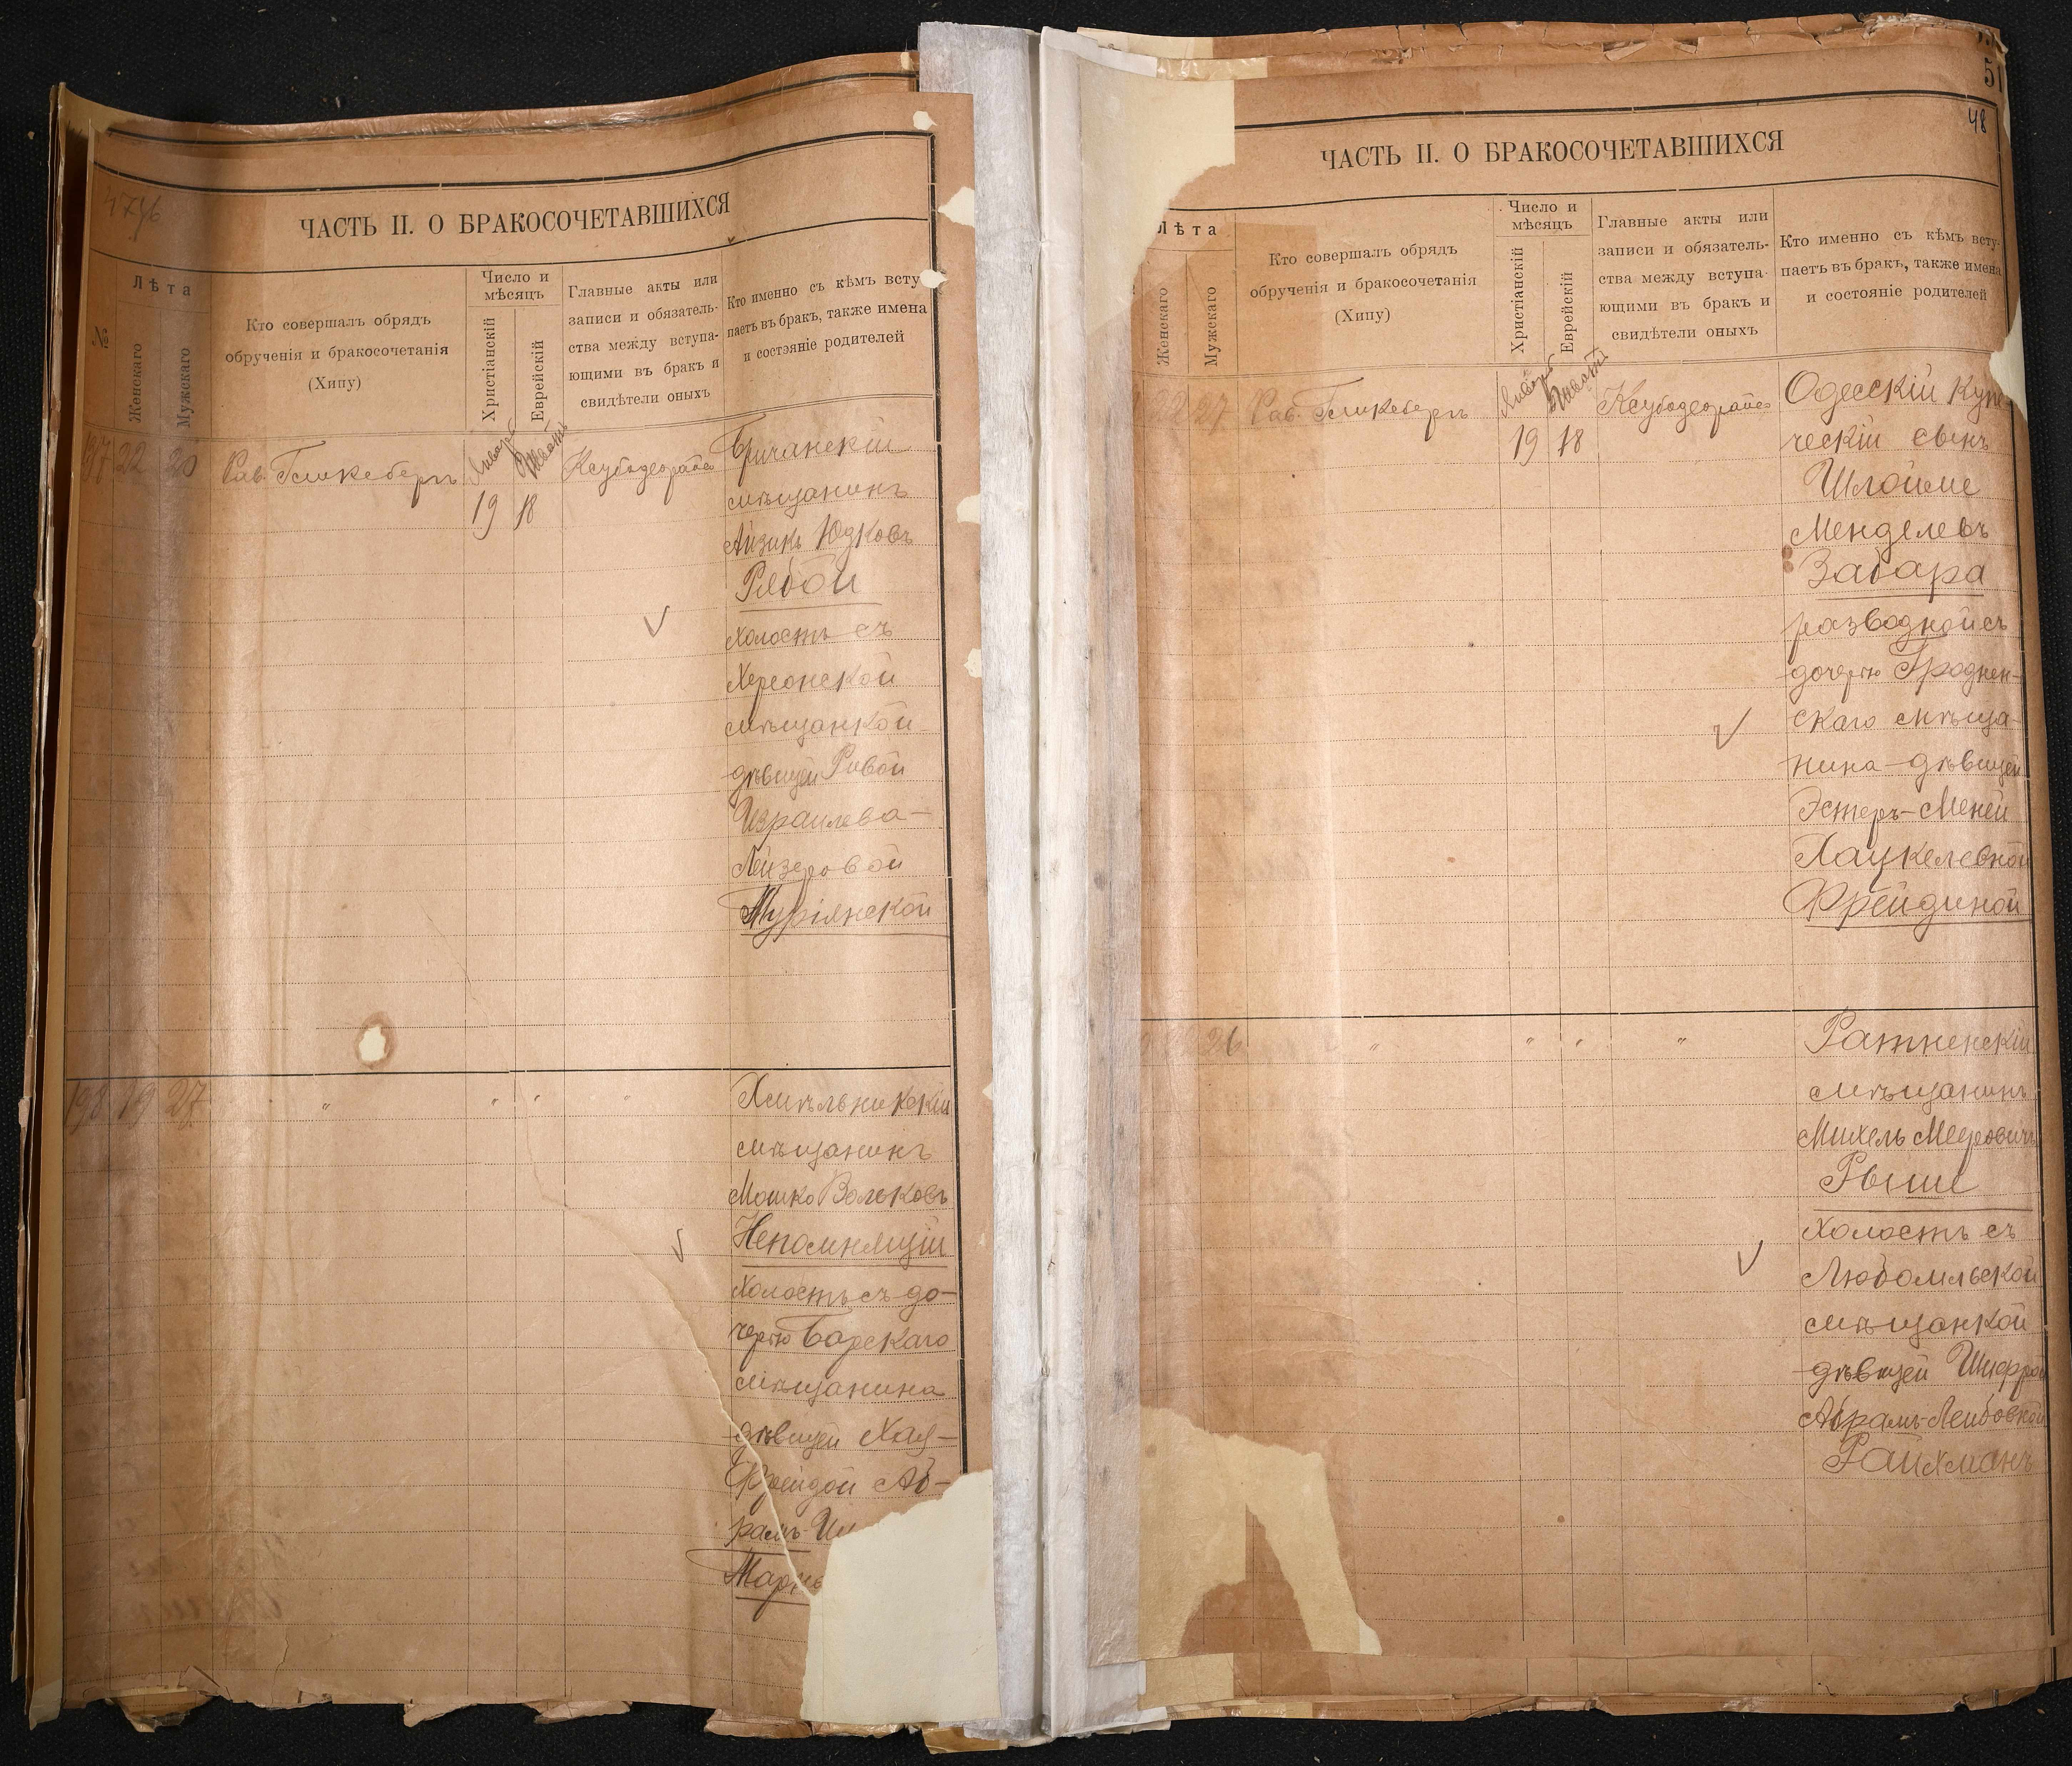 ЧАСТЬ II. О БРАКОСОЧЕТАВШИХСЯ
№
Лѣта
Женскаго
Мужскаго
Кто совершалъ обрядъ
обрученія и бракосочетанія
(Хипу)
Число и
мѣсяцъ
Христіанскій
Еврейскій
Главные акты или
записи и обязатель-
ства между вступа-
ющими въ бракъ и
свидѣтели оныхъ
Кто именно съ кѣмъ всту-
паетъ въ бракъ, также имена
и состояніе родителей
197 22 20 Рав. Январь Шватъ
19 18
Бричанскій
мѣщанинъ
Айзикъ Юдковъ
Рябой
холостъ съ
Херсонской
мѣщанкой
дѣвицей Ривой
Израилева-
Лейзеровой
198 19 27 " " " "
Хмѣльникскій
мѣщанинъ
Мошко Вольковъ
Непомнящій
холостъ съ до-
черью Барскаго
мѣщанина
дѣвицей Хая-
Фрейдой Аб-
рамъ-
51
48
ЧАСТЬ II. О БРАКОСОЧЕТАВШИХСЯ
Лѣта
Женскаго
Мужскаго
Кто совершалъ обрядъ
обрученія и бракосочетанія
(Хипу)
Число и
мѣсяцъ
Христіанскій
Еврейскій
Главные акты или
записи и обязатель-
ства между вступа-
ющими въ бракъ и
свидѣтели оныхъ
Кто именно съ кѣмъ всту-
паетъ въ бракъ, также имена
и состояніе родителей
22 27 Рав. Январь Шватъ
19 18
Одесскій купе
ческій сынъ
Шлойме
Менделевъ
Забара
разводной съ
дочерью Гроднен-
скаго мѣща-
нина-дѣвицей
Эстеръ-Меней
Хацкелевной
Фрейдиной
26 " " " "
Ратненскій
мѣщанинъ
Михель Мееровичъ
холостъ съ
Любомльской
мѣщанкой
дѣвицей Шифрой
Абрамъ-Лейбовной
Райхманъ